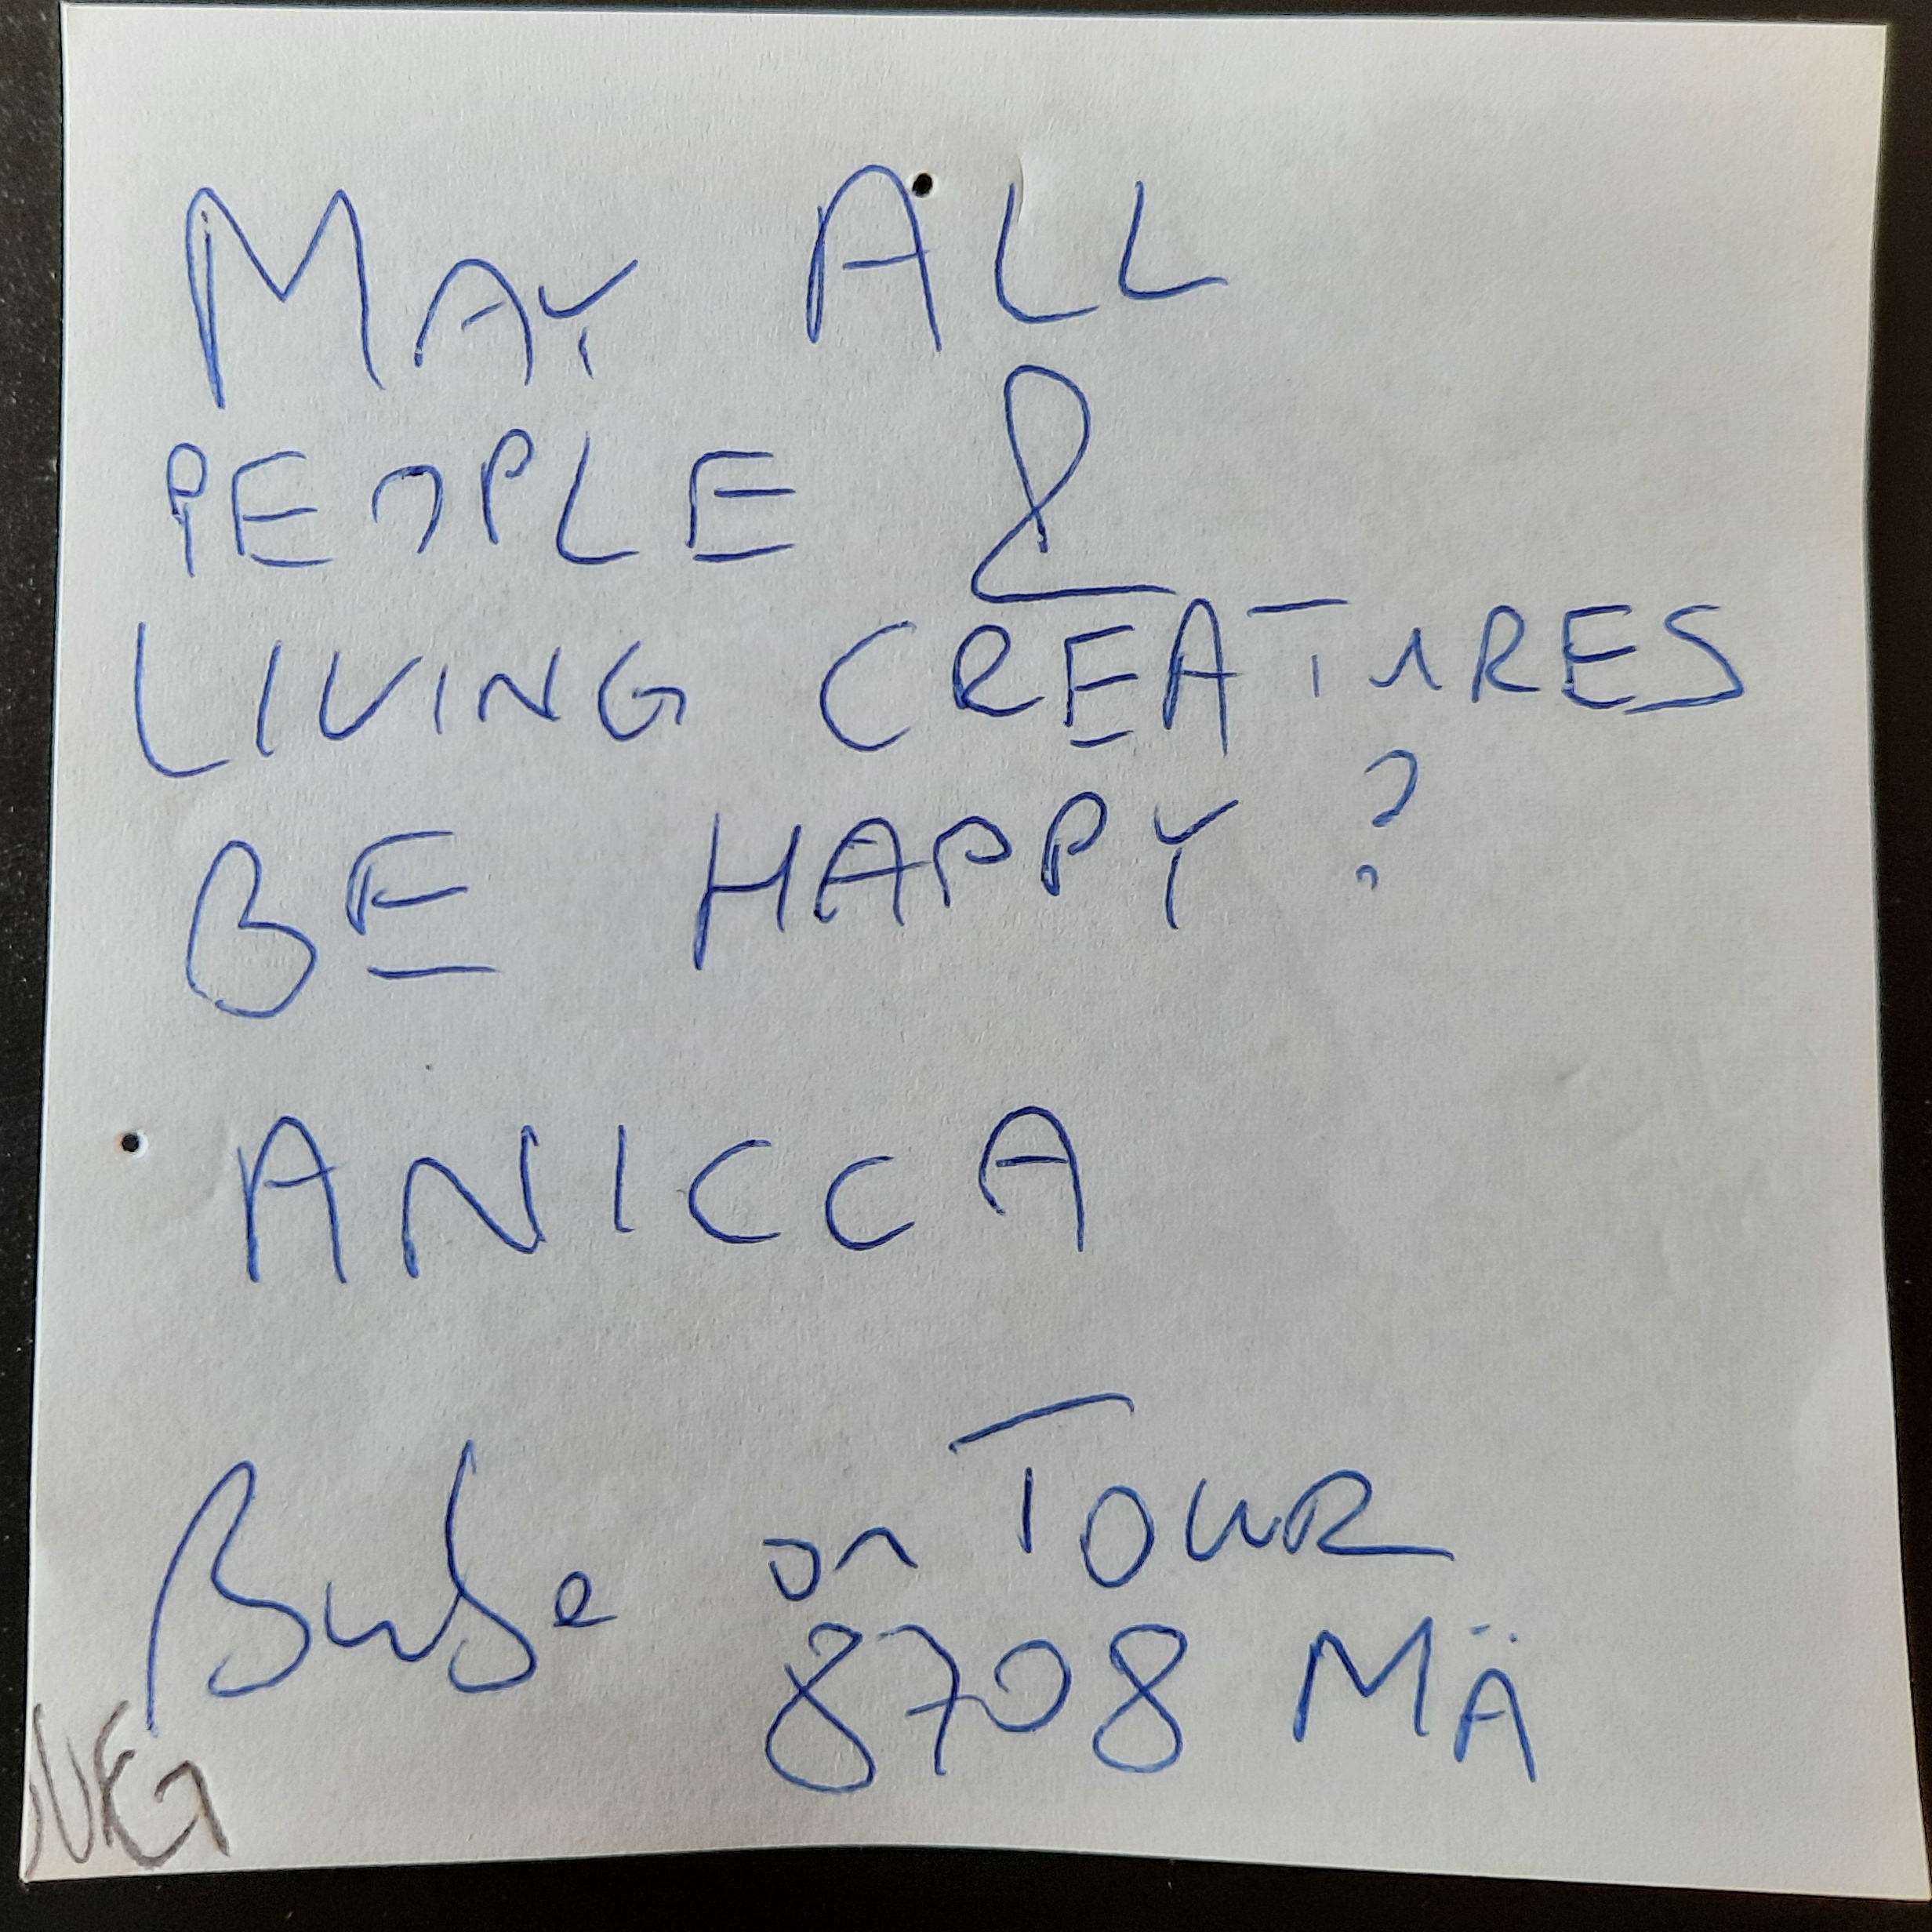 MAY ALL
PEOPLE &
LIVING CREATURES
BE HAPPY?
ANICCA
Bube on TOUR
8708 MÄ